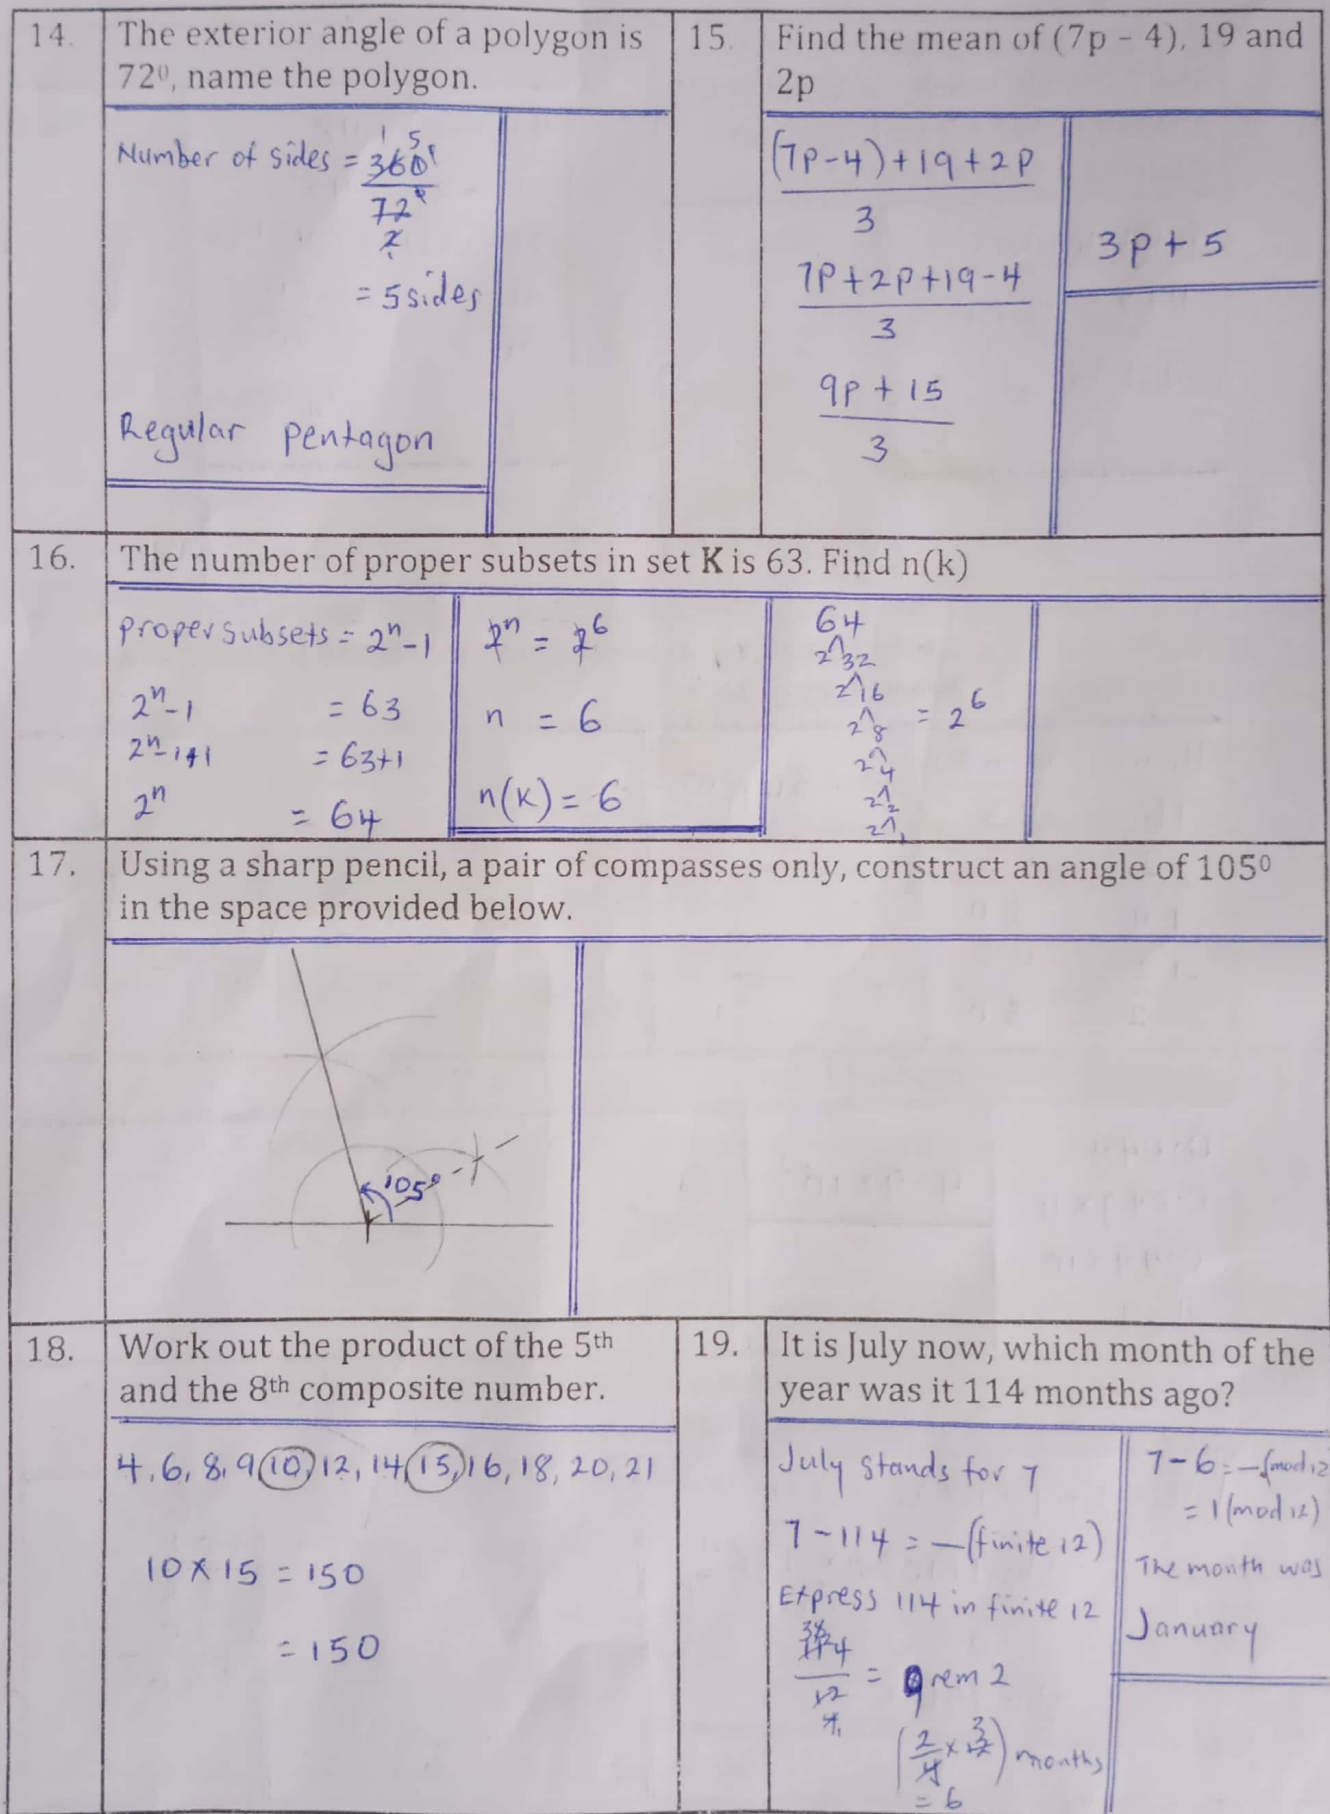 14.
The exterior angle of a polygon is
72⁰, name the polygon.
Number of sides = 360°
72°
= 5 sides
Regular pentagon
15.
Find the mean of (7p – 4), 19 and
2p
(7p-4)+19+2p
3
7p+2p+19-4
3
9p + 15
3
3p + 5
16.
The number of proper subsets in set K is 63. Find n(k)
proper subsets = 2ⁿ-1
2ⁿ-1 = 63
2ⁿ-1+1 = 63+1
2ⁿ = 64
2ⁿ = 2⁶
n = 6
n(k) = 6
64
2 32
2 16
2 8 = 2⁶
2 4
2 2
2 1
17.
Using a sharp pencil, a pair of compasses only, construct an angle of 105⁰
in the space provided below.
105°
18.
Work out the product of the 5th
and the 8th composite number.
4, 6, 8, 9, 10, 12, 14, 15, 16, 18, 20, 21
10 × 15 = 150
= 150
19.
It is July now, which month of the
year was it 114 months ago?
July stands for 7
7 - 114 = —(finite 12)
Express 114 in finite 12
114
12
= 9 rem 2
(2/4 × 12) months
= 6
7 - 6 = —(mod 12
= 1 (mod 12)
The month was
January